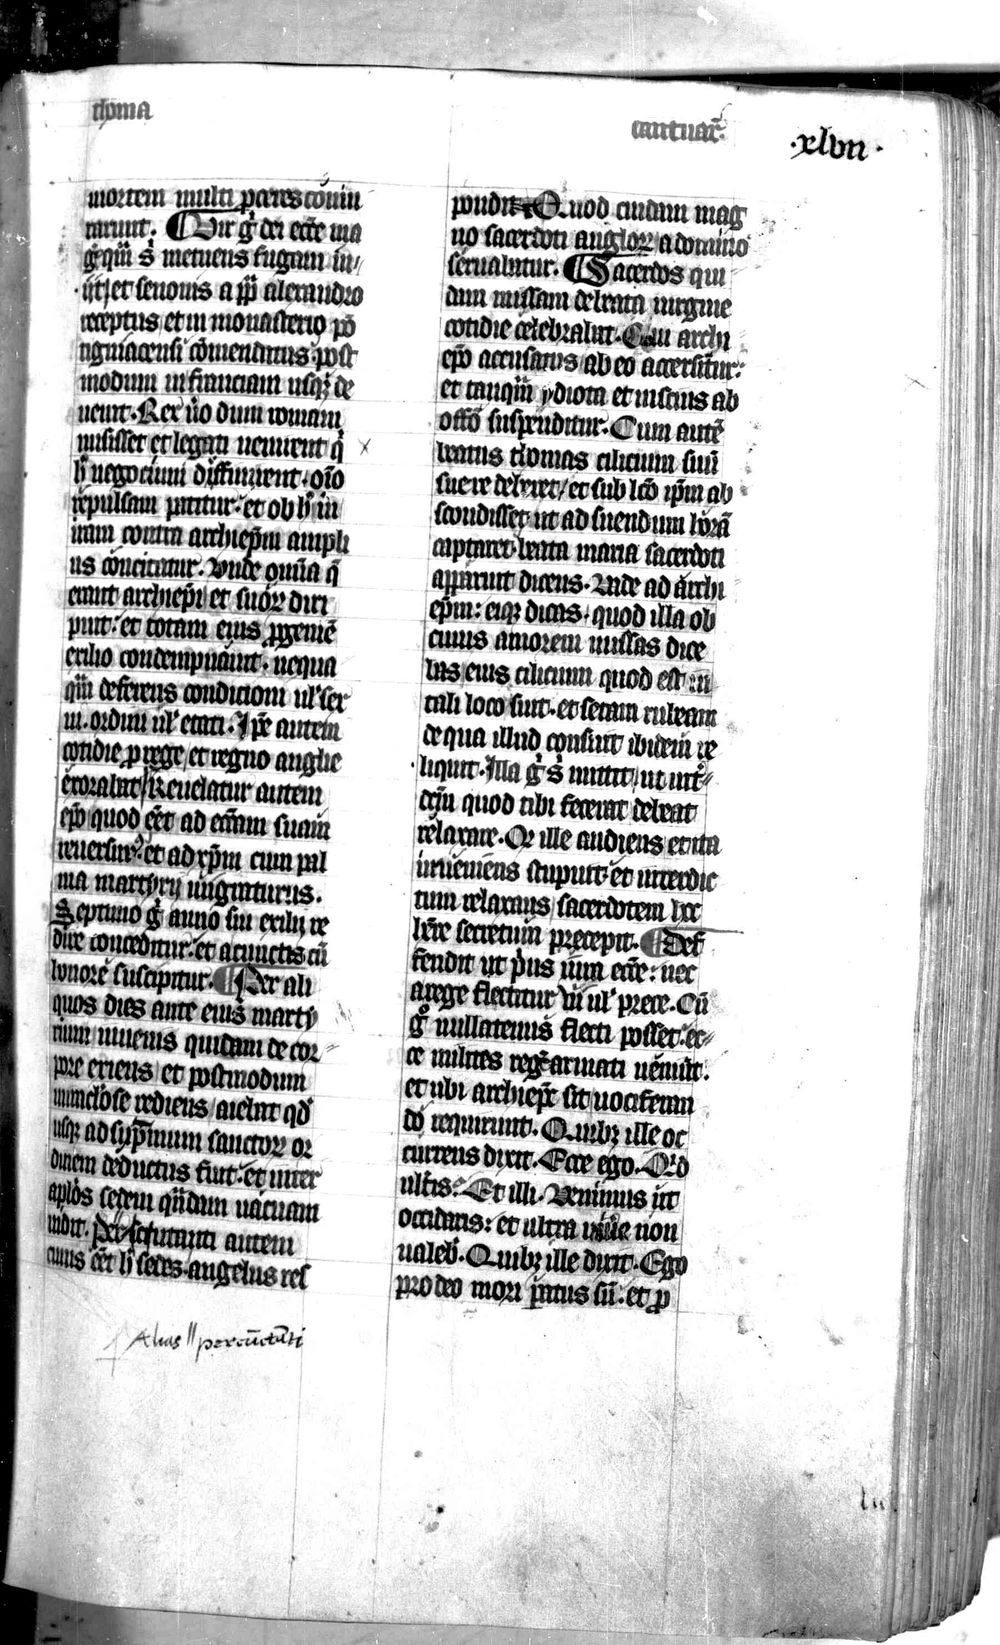 thoma
cantuar̄.
.xlvii.
mortem multi p̲ceres cōmi
narunt. ¶ Vir g̊ dei ecc̄e ma
g̊ qui s̄ metuens fugam in
ijt / et senonis a pp̄ alexandro
receptus / et in monasterio pō
tigniacensi cōmendatus / post
modum in franciam usqꝫ de
uenit. Rex ūo dum romam
misisset et legati uenirent q̇
h̄ negocium diffinirent. oīo
repulsam patitur. et ob h̄ in
iram contra archiep̄m ampli
us concitatur. Vnde omīa q̄
erant archiep̄i et suoꝝ diri
puit. et totam eius p̲geniē
exilio condempnauit. nequa
qm̄ deferens condicioni ul' sex
ui. ordini ul' etati. Ip̄e autem
cotidie p̲ rege / et regno anglie
exorabat / Reuelatur autem
ep̄o quod eēt ad ecc̄am suam
reuersurꝰ. et ad xp̄m cum pal
ma martyrij migraturus.
Septimo g̊ anno sui exilij re
dire conceditur. et a cunctis cū
honore suscipitur. ¶ Per ali
quos dies ante eius marty
rium iuuenis quidam de cor
pore exiens et postmodum
miraclōse rediens / aiebat qd̄
usqꝫ ad sup̄mum sanctoꝝ or
dinem deductus fuit. et inter
apl'os sedem qn̄dam uacuam
uidit. Perscrutanti autem
cuius eēt h̄ sedes. angelus res
Alias || percūctāti
pondit Quod cuidam mag
no sacerdoti angloꝝ a domino
seruabatur. ¶ Sacerdos qui
dam missam de beata uirgine
cotidie celebrabat. Qui archi
ep̄o accusatus / ab eo accersitur.
et tanquā ydiota et inscius ab
offō suspenditur. Cum autē
beatus thomas cilicium suū
suere deberet / et sub lc̄o ip̄m ab
scondisset ut ad suendum horā
captaret. beata maria sacerdoti
apparuit dicens. Vade ad archi
ep̄m: eiqꝫ dicas. quod illa ob
cuius amorem missas dice
bas eius cilicium quod est in
tali loco suit. et setam rubeam
de qua illud consuit ibidem re
liquit. Illa g̊ s̄ mittit / ut int̄
dc̄m quod tibi fecerat debeat
relaxare. Qd̄ ille audiens et ita
inueniens stupuit et interdic
tum relaxans / sacerdotem hoc
hr̄e secretum precepit. ¶ Def
fendit ut p̲us iura ecc̄e: nec
a rege flectitur ui ul' prece. Cū
g̊ nullatenus flecti posset. ec
ce milites regꝫ armati uēniūt.
et ubi archiep̄c sit uociferan
do requirunt. Quibꝫ ille oc
currens dixit. Ecce ego. Qd̄
ultis. Et illi. Venimus ut
occidaris: et ultra uiuere non
ualeb'. Quibꝫ ille dixit. Ego
pro deo mori p̲atus sū. et p̲